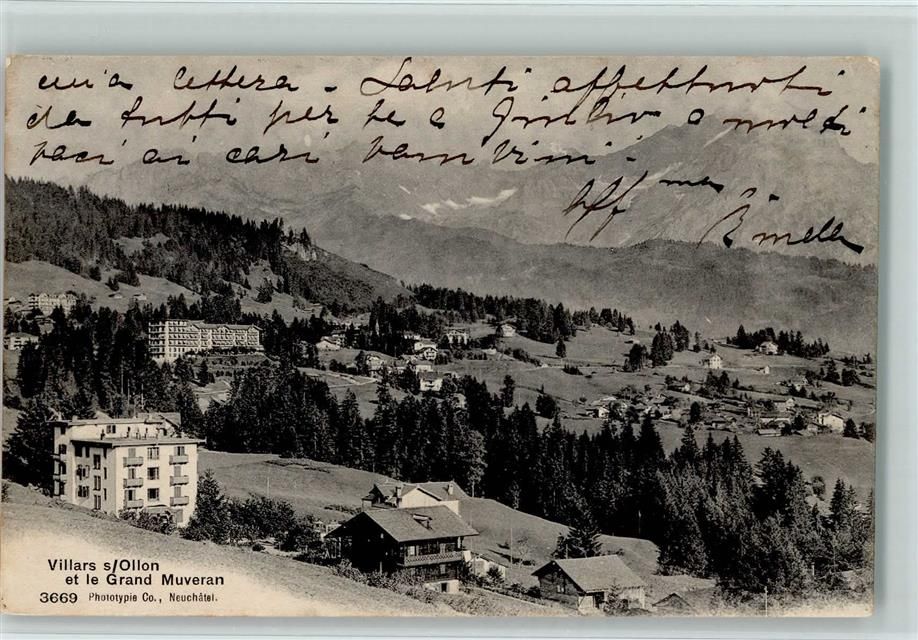 mia lettera - Saluti affettuosi
da tutti per te e Giulio e molti
baci ai cari bambini.
Aff
Villars s/Ollon
et le Grand Muveran
3669 Phototypie Co., Neuchâtel.